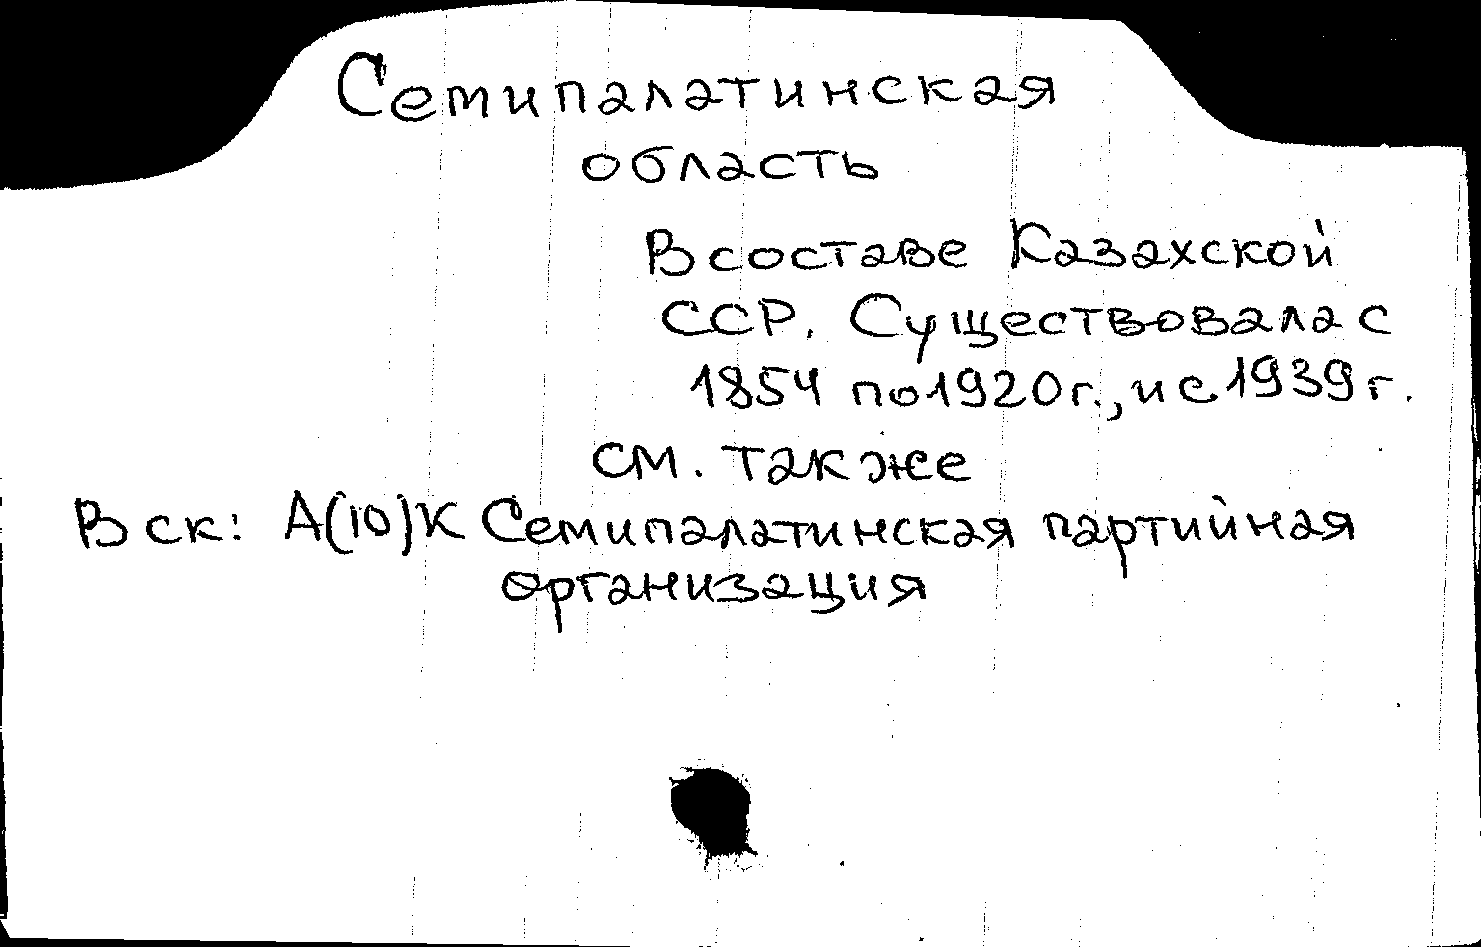 Семипалатинская
область
В составе Казахской
ССР. Существовала с
1854 по 1920 г., и с 1939 г.
см. также
В ск: А(10)К Семипалатинская партийная
организация